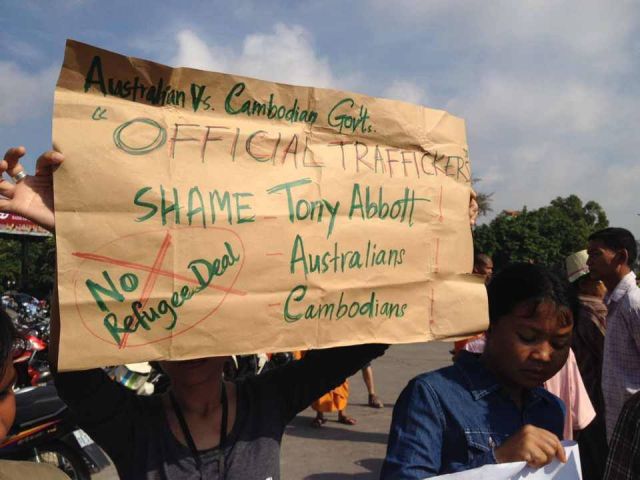 Australian Vs. Cambodian Gov'ts.
"OFFICIAL TRAFFICKER"
SHAME - Tony Abbott !
- Australians !
- Cambodians !
No
Refugee Deal